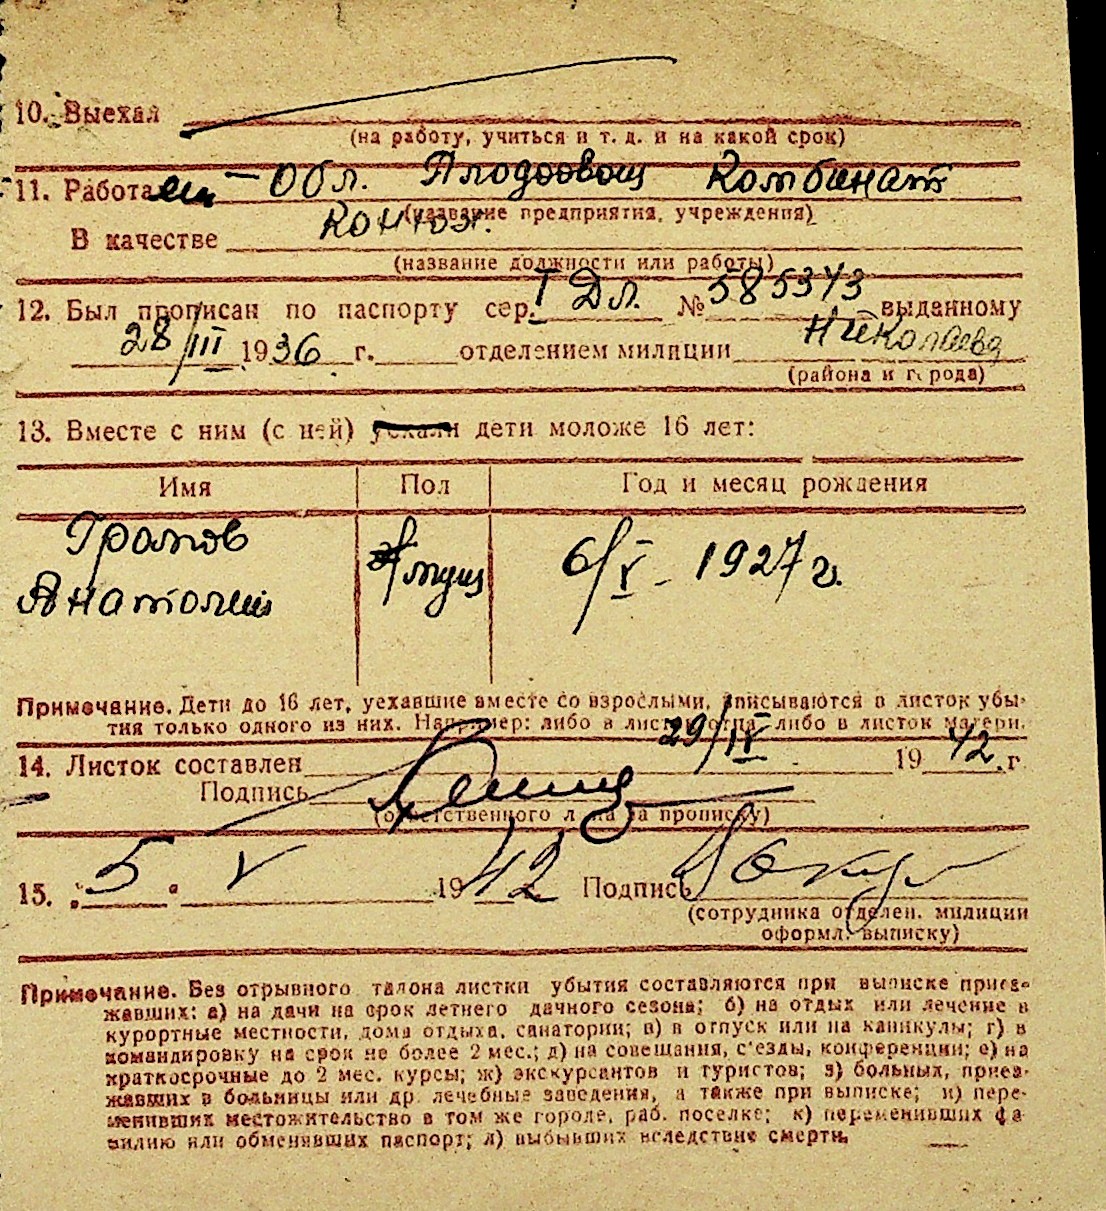 10. Выехал
(на работу, учиться и т. д. и на какой срок)
11. Работает — Обл. Плодоовощ Комбинат
(название предприятия, учреждения)
В качестве Конюх.
(название должности или работы)
12. Был прописан по паспорту сер. I Дл. № 585373 выданному
28/III 1936 г. отделением милиции Николаева
(района и города)
13. Вместе с ним (с ней) уехали дети моложе 16 лет:
Имя Пол Год и месяц рождения
Громов муж 6/V - 1927 г.
Анатолий
Примечание. Дети до 16 лет, уехавшие вместе со взрослыми, вписываются в листок убы-
тия только одного из них. Например: либо в листок отца либо в листок матери.
14. Листок составлен 29/IV 1942 г.
Подпись
(ответственного лица за прописку)
15. 5. V 1942 Подпись
(сотрудника отделен. милиции
оформл. выписку)
Примечание. Без отрывного талона листки убытия составляются при выписке приез-
жавших: а) на дачи на срок летнего дачного сезона; б) на отдых или лечение в
курортные местности, дома отдыха, санатории; в) в отпуск или на каникулы; г) в
командировку на срок не более 2 мес.; д) на совещания, с'езды, конференции; е) на
краткосрочные до 2 мес. курсы; ж) экскурсантов и туристов; з) больных, приез-
жавших в больницы или др. лечебные заведения, а также при выписке; и) пере-
менивших местожительство в том же городе, раб. поселке; к) переменивших фа-
милию или обменявших паспорт; л) выбывших вследствие смерти.